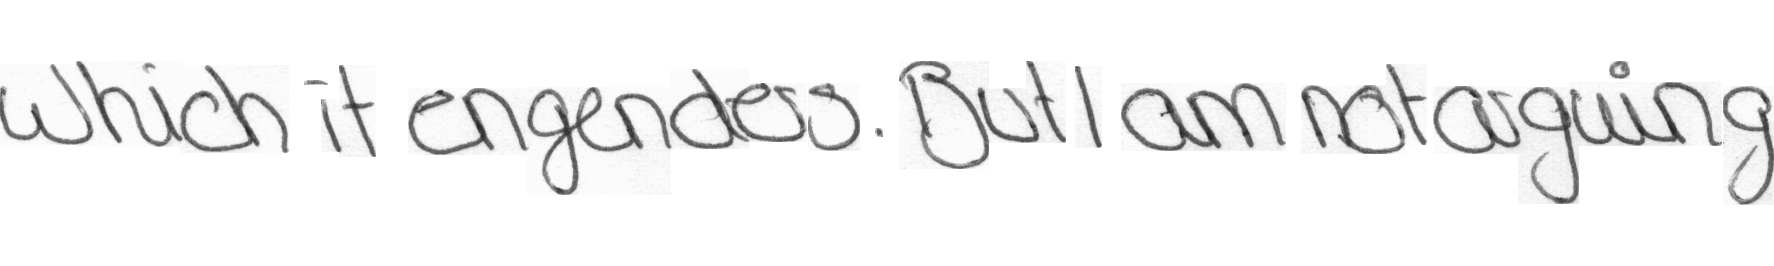 which it engenders. But I am not arguing